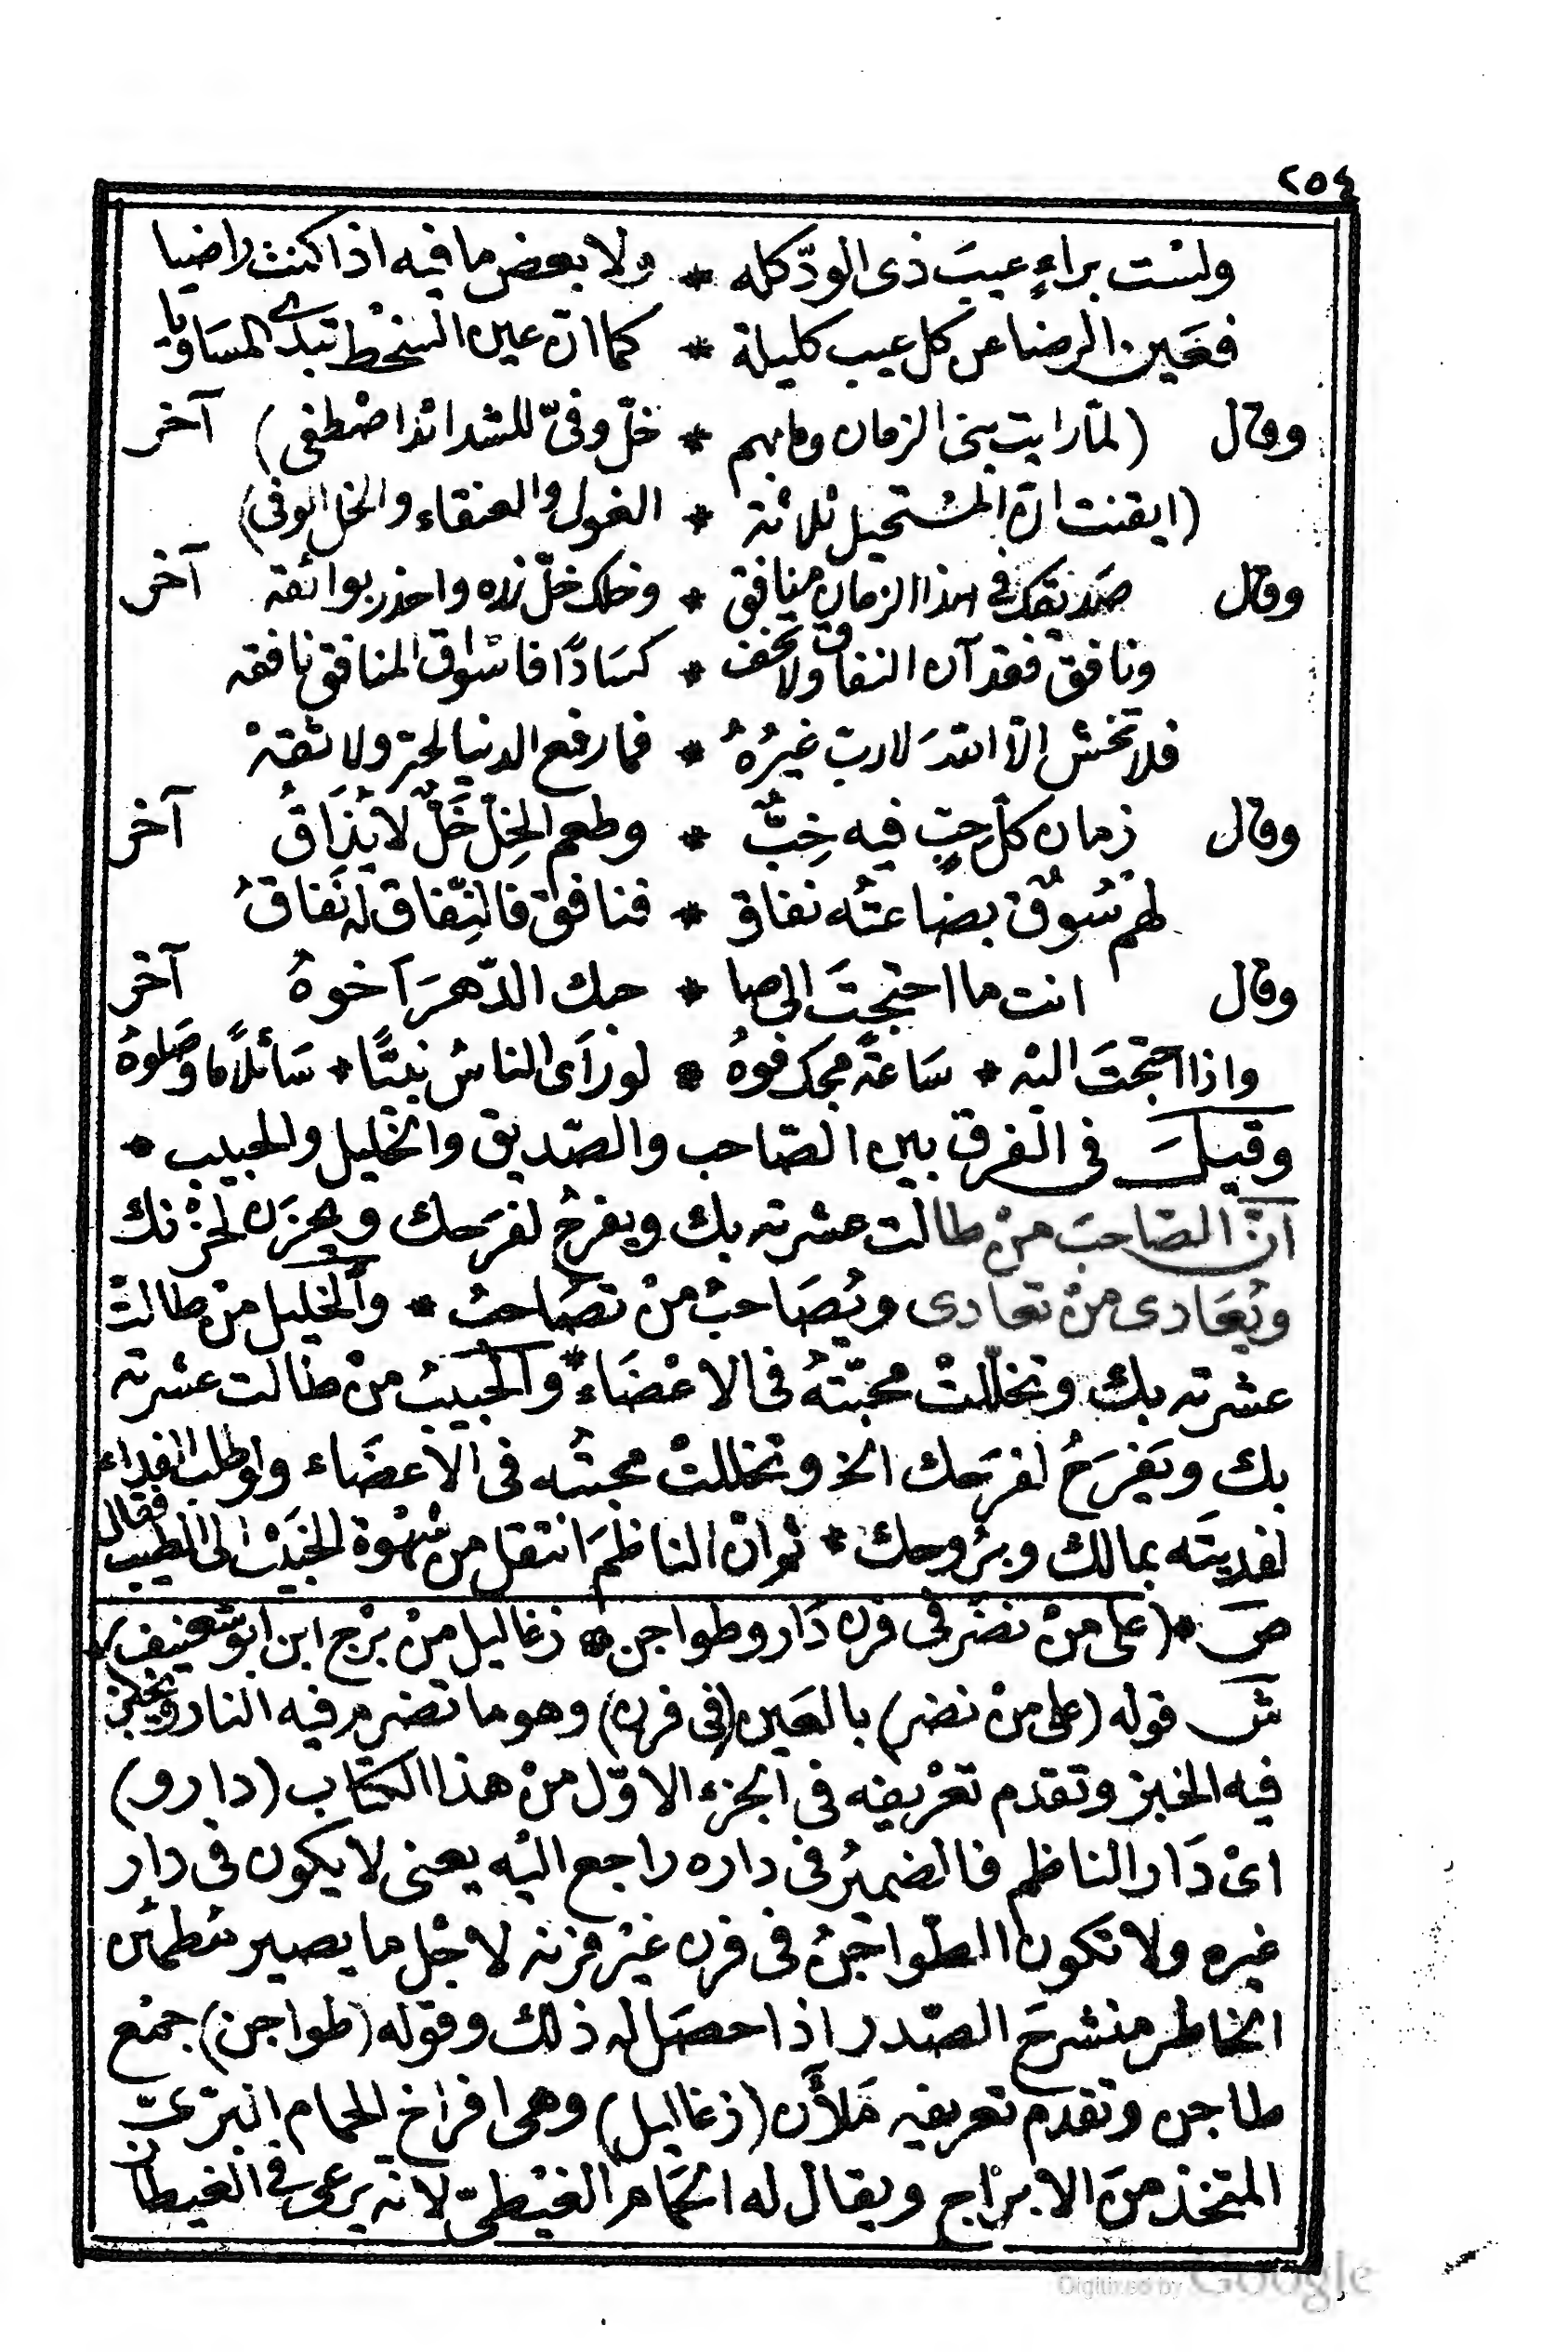 ٢٥٤
ولسْت براءٍ عيبَ ذى الودّ كله * ولا بعض ما فيه اذا كنت راضيا
فعَين الرضا عن كل عيب كليلة * كما انّ عين السخْط تبدى المسَاويا
وقال (لمّا رايت بنى الزمان وما بهم * خلّ وفىّ للشدائد اصْطفى) آخر
(ايقنت انّ المسْتحيل ثلاثة * الغول والعنقاء والخل الوفى)
وقال صَديقك فى هذا الزمان منافق * وخلك خلّ زره واحذر بوائقه آخر
ونافقْ فقد آن النفاق ولا تخف * كسَادًا فاسْواق المنافق نافقه
فلا تخش الّا اللهَ لا ربّ غيرُهُ * فما رفع الدنيا لحرّ ولا ثقهْ
وقال زمان كلّ حبٍّ فيه خِبٌّ * وطعم الخِلّ خَلٌّ لا يُذَاقُ آخر
لهم سُوقٌ بضاعتُه نفاق * فنافقْ فالنِّفاق له نَفاقُ
وقال انت ما احتجتَ الى صا * حبك الدّهرَ اَخوهُ آخر
واذا احتجْتَ اليْه * سَاعةً مجكَ فوهُ * لو رَاَى الناسُ نبيًّا * سَائلًا ما وَصَلوهُ
وقيلَ فى الفرق بين الصّاحب والصّديق والخليل والحبيب *
انّ الصَاحبَ منْ طالت عشرته بك ويفرحُ لفرَحك ويحزَن لحزْنك
ويُعَادى منْ تعادى ويُصَاحبُ منْ تصَاحبُ * والخليل منْ طالتْ
عشرته بك وتخللتْ محبّتهُ فى الاعْضَاء * والحبيبُ منْ طالت عشرته
بك ويَفرَحُ لفرَحك الخ وتخللتْ محبتُه فى الاعضَاء ولو طلب الفداء
لفديتَه بمالك وبرُوحك * ثم انّ الناظمَ انتقل من شهْوة الخبَيْث الى الطيب فقال
صَ * (على منْ نضرْ فى فرن دَارو طواجن * زغاليل منْ برْج ابن ابو شعنيف)
شَ قوله (على منْ نضر) بالعَين (فى فرن) وهو ما تضرم فيه النار ويخبز
فيه الخبز وتقدم تعْريفه فى الجزء الاوّل منْ هذا الكتاب (دارو)
اىْ دَار الناظم فالضميرُ فى داره راجع اليْه يعنى لا يكون فى دار
غيره ولا تكون الطّواجنُ فى فرن غيْر فرنه لاجْل ما يصير مُطمئن
الخاطر منشرحَ الصّدر اذا حصَل له ذلك وقوله (طواجن) جمْع
طاجن وتقدم تعريفه مَلآن (زغاليل) وهى افراخ الحمام البرّىّ
المتخذ منَ الابْراج ويقال له الحمَام الغيْطىّ لانّه يرعى فى الغيطان
Digitized by Google